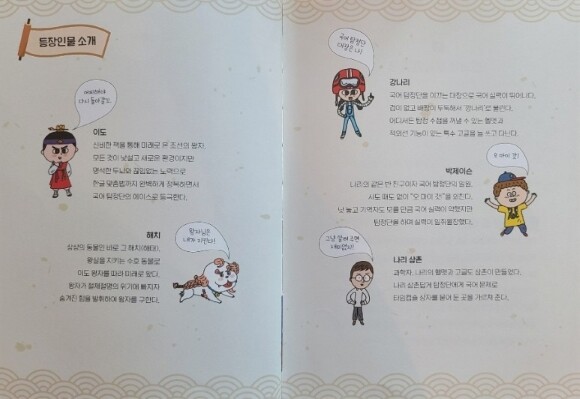 등장인물 소개
이도
신비한 책을 통해 미래로 온 조선의 왕자.
모든 것이 낯설고 새로운 환경이지만
명석한 두뇌와 끊임없는 노력으로
한글 맞춤법까지 완벽하게 정복하면서
국어 탐정단의 에이스로 등극한다.
왕자님은
내가 지킨다!
해치
상상의 동물인 바로 그 해치(해태).
왕실을 지키는 수호 동물로
이도 왕자를 따라 미래로 왔다.
왕자가 절체절명의 위기에 빠지자
숨겨진 힘을 발휘하여 왕자를 구한다.
국어 탐정단
대장은 나!
강나리
국어 탐정단을 이끄는 대장으로 국어 실력이 뛰어나다.
겁이 없고 배짱이 두둑해서 '강나리'로 불린다.
어디서든 탐정 수첩을 꺼낼 수 있는 헬멧과
적외선 기능이 있는 특수 고글을 늘 쓰고 다닌다.
오 마이 갓!
박제이슨
나리의 같은 반 친구이자 국어 탐정단의 일원.
시도 때도 없이 "오 마이 갓!"을 외친다.
낫 놓고 기역자도 모를 만큼 국어 실력이 약했지만
탐정단을 하며 실력이 일취월장했다.
그냥 알려 주면
재미없지!
나리 삼촌
과학자. 나리의 헬멧과 고글도 삼촌이 만들었다.
나리 삼촌답게 탐정단에게 국어 문제로
타임캡슐 상자를 묻어 둔 곳을 가르쳐 준다.